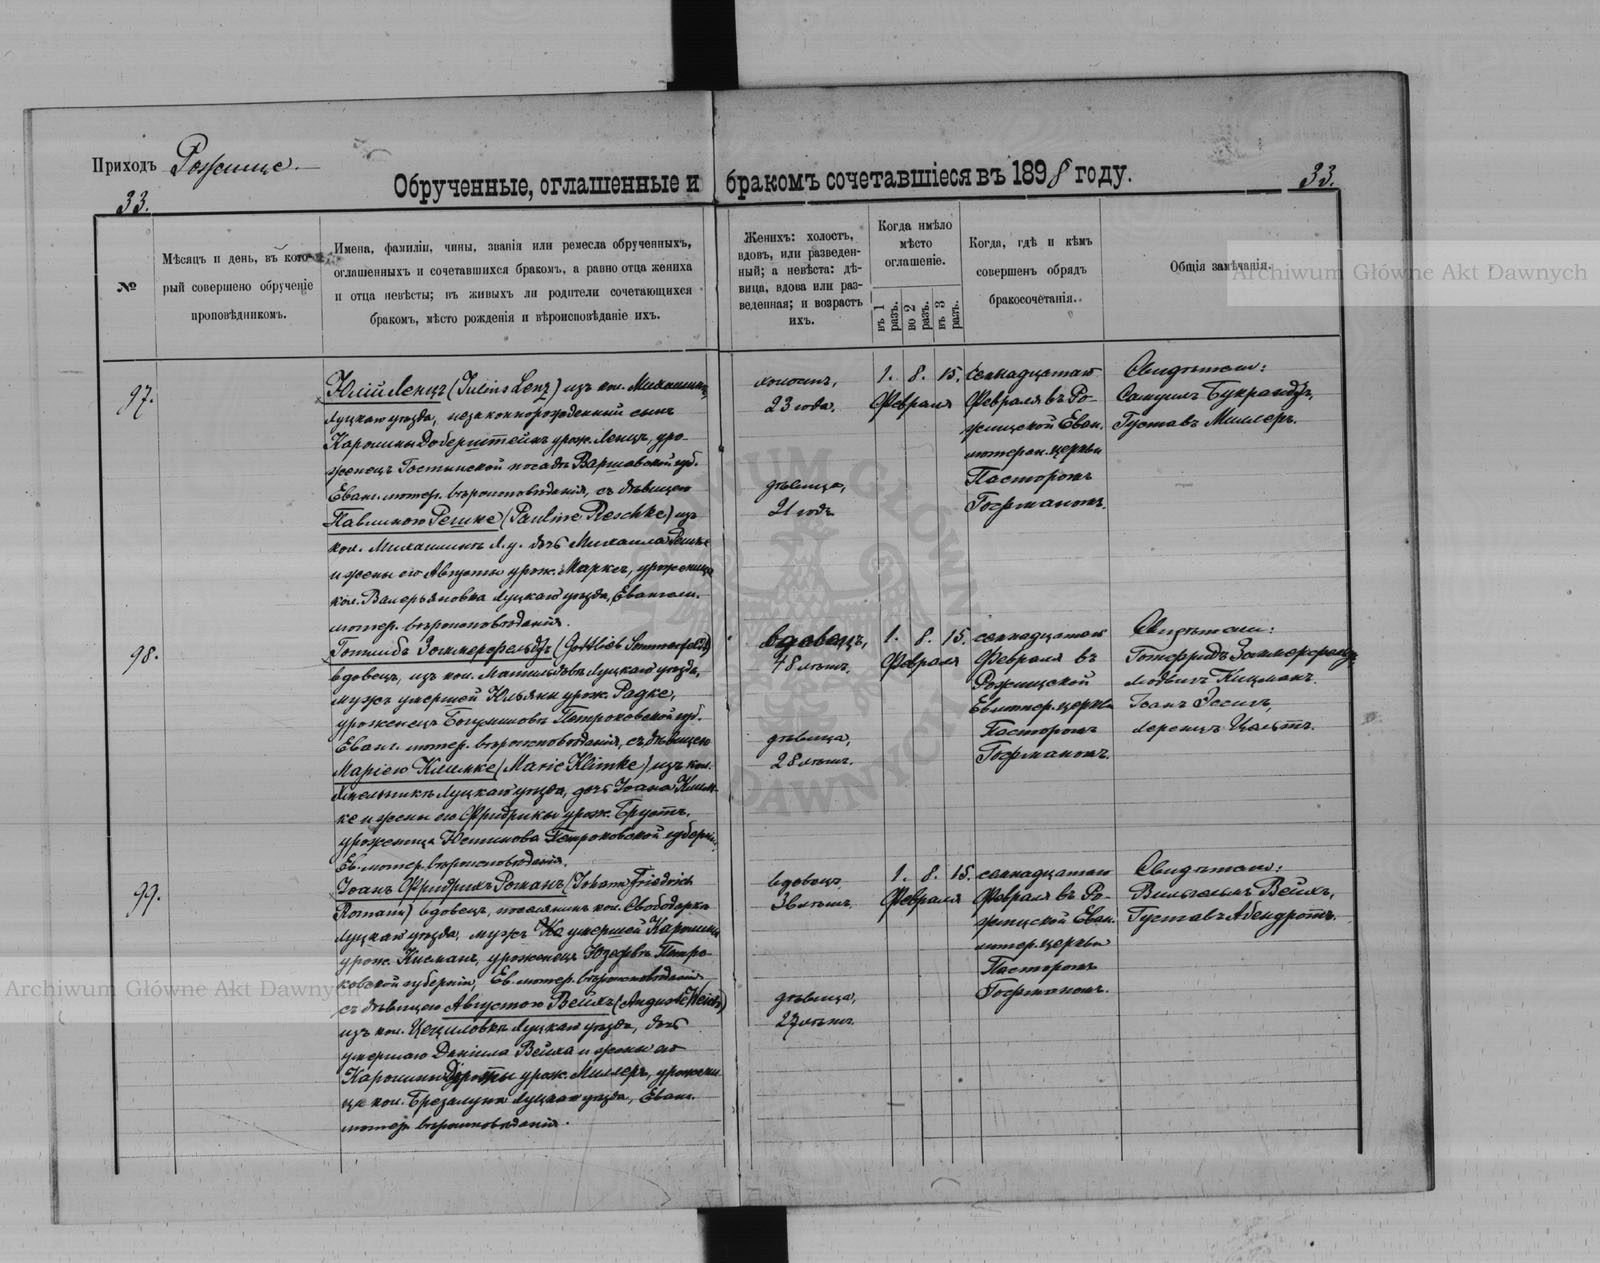 Приходъ Рожище.
Обрученные, оглашенные и бракомъ сочетавшіеся въ 1898 году.
33.
33.
№
Мѣсяцъ и день, въ кото-
рый совершено обрученіе
проповѣдникомъ.
Имена, фамиліи, чины, званія или ремесла обрученныхъ,
оглашенныхъ и сочетавшихся бракомъ, а равно отца жениха
и отца невѣсты; въ живыхъ ли родители сочетающихся
бракомъ, мѣсто рожденія и вѣроисповѣданіе ихъ.
Женихъ: холостъ,
вдовъ, или разведен-
ный; а невѣста: дѣ-
вица, вдова или раз-
веденная; и возрастъ
ихъ.
Когда имѣло
мѣсто
оглашеніе.
въ 1
разъ.
во 2
разъ.
въ 3
разъ.
Когда, гдѣ и кѣмъ
совершенъ обрядъ
бракосочетанія.
Общія замѣчанія.
Archiwum Główne Akt Dawnych
97.
Юлій Ленцъ (Julius Lenz) изъ кол.
Луцкаго уѣзда, незаконнорожденный сынъ
Каролины Доберштейнъ урож. Ленцъ, уро-
женецъ Гостинской посадъ Варшавской губ.
Еванг. лютер. вѣроисповѣданія, съ дѣвицею
Павлиною Решке (Pauline Reschke) изъ
кол. Михалинъ Л. у. дочь Михаила Решке
и жены его Августы урож. Марксъ, уроженица
кол. Валерьяновка Луцкаго уѣзда, Евангел.
лютер. вѣроисповѣданія.
холостъ,
23 года.
дѣвица,
21 годъ
1. 8. 15.
Февраля
семнадцатаго
Февраля въ Ро-
жищской Еван.
лютеран. церкви
Пасторомъ
Госрманомъ.
Свидѣтели:
Самуилъ
Густавъ Миллеръ.
98.
Готлибъ Зоммерфельдъ (Gottlieb Sommerfeld)
вдовецъ, изъ кол. Матильдовъ Луцкаго уѣзда,
мужъ умершей Юльяны урож. Радке,
уроженецъ Богумиловъ Петроковской губ.
Еванг. лютер. вѣроисповѣданія, съ дѣвицею
Маріею Климке (Marie Klimke) изъ кол.
Луцкаго уѣзда, дочь Іоана Клим-
ке и жены его Фридрики урож. Брустъ,
уроженица Петроковской губерніи
Ев. лютер. вѣроисповѣданія.
вдовецъ,
48 лѣтъ.
дѣвица,
28 лѣтъ.
1. 8. 15.
Февраля
семнадцатаго
Февраля въ
Рожищской
Ев. лютер. церкви
Пасторомъ
Госрманомъ.
Свидѣтели:
Готфридъ Зоммерфельдъ
Людвигъ Кицманъ.
Іоанъ
Лоренцъ
99.
Іоанъ Фридрихъ Романъ (Johann Friedrich
Romann) вдовецъ, поселянинъ кол. Свободарка
Луцкаго уѣзда, мужъ умершей Каролины
урож. Кисманъ, уроженецъ Юзефовъ Петро-
ковской губерніи, Ев. лютер. вѣроисповѣданія
съ дѣвицею Августою Вейхъ (Auguste Weich)
изъ кол. Цециловка Луцкаго уѣзда, дочь
умершаго Даніила Вейха и жены его
Каролины Доротеи урож. Миллеръ, урожен
ица кол. Брезалуки Луцкаго уѣзда, Еванг.
лютер. вѣроисповѣданія.
вдовецъ
38 лѣтъ.
дѣвица,
27 лѣтъ.
1. 8. 15.
Февраля
семнадцатаго
Февраля въ Ро-
жищской Еван.
лютер. церкви
Пасторомъ
Госрманомъ.
Свидѣтели:
Вильгельмъ Вейхъ,
Густавъ Абендротъ.
Archiwum Główne Akt Dawnych
ARCHIWUM GŁÓWNE AKT DAWNYCH